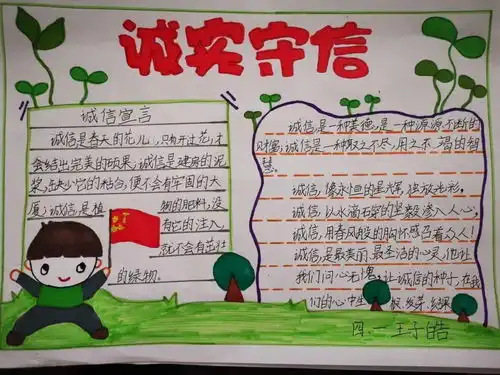 诚实守信
诚信宣言
诚信是春天的花儿,只有开过花,才
会结出完美的硕果;诚信是建房的泥
浆,缺少它的粘合,便不会有牢固的大
厦;诚信是植 物的肥料,没
有它的注入,
就不会有茁壮
的绿物。
诚信是一种美德,是一种源源不断的
财富;诚信是一种取之不尽,用之不竭的智
慧。
诚信,像永恒的星辉,绽放光彩。
诚信,以水滴石穿的坚毅渗入人心,
诚信,用春风般的胸怀感召着众人!
诚信,是最美丽最圣洁的心灵,他让
我们问心无愧;让诚信的种子,在我
们的心中生 根,发芽,结果
四.一 王子皓